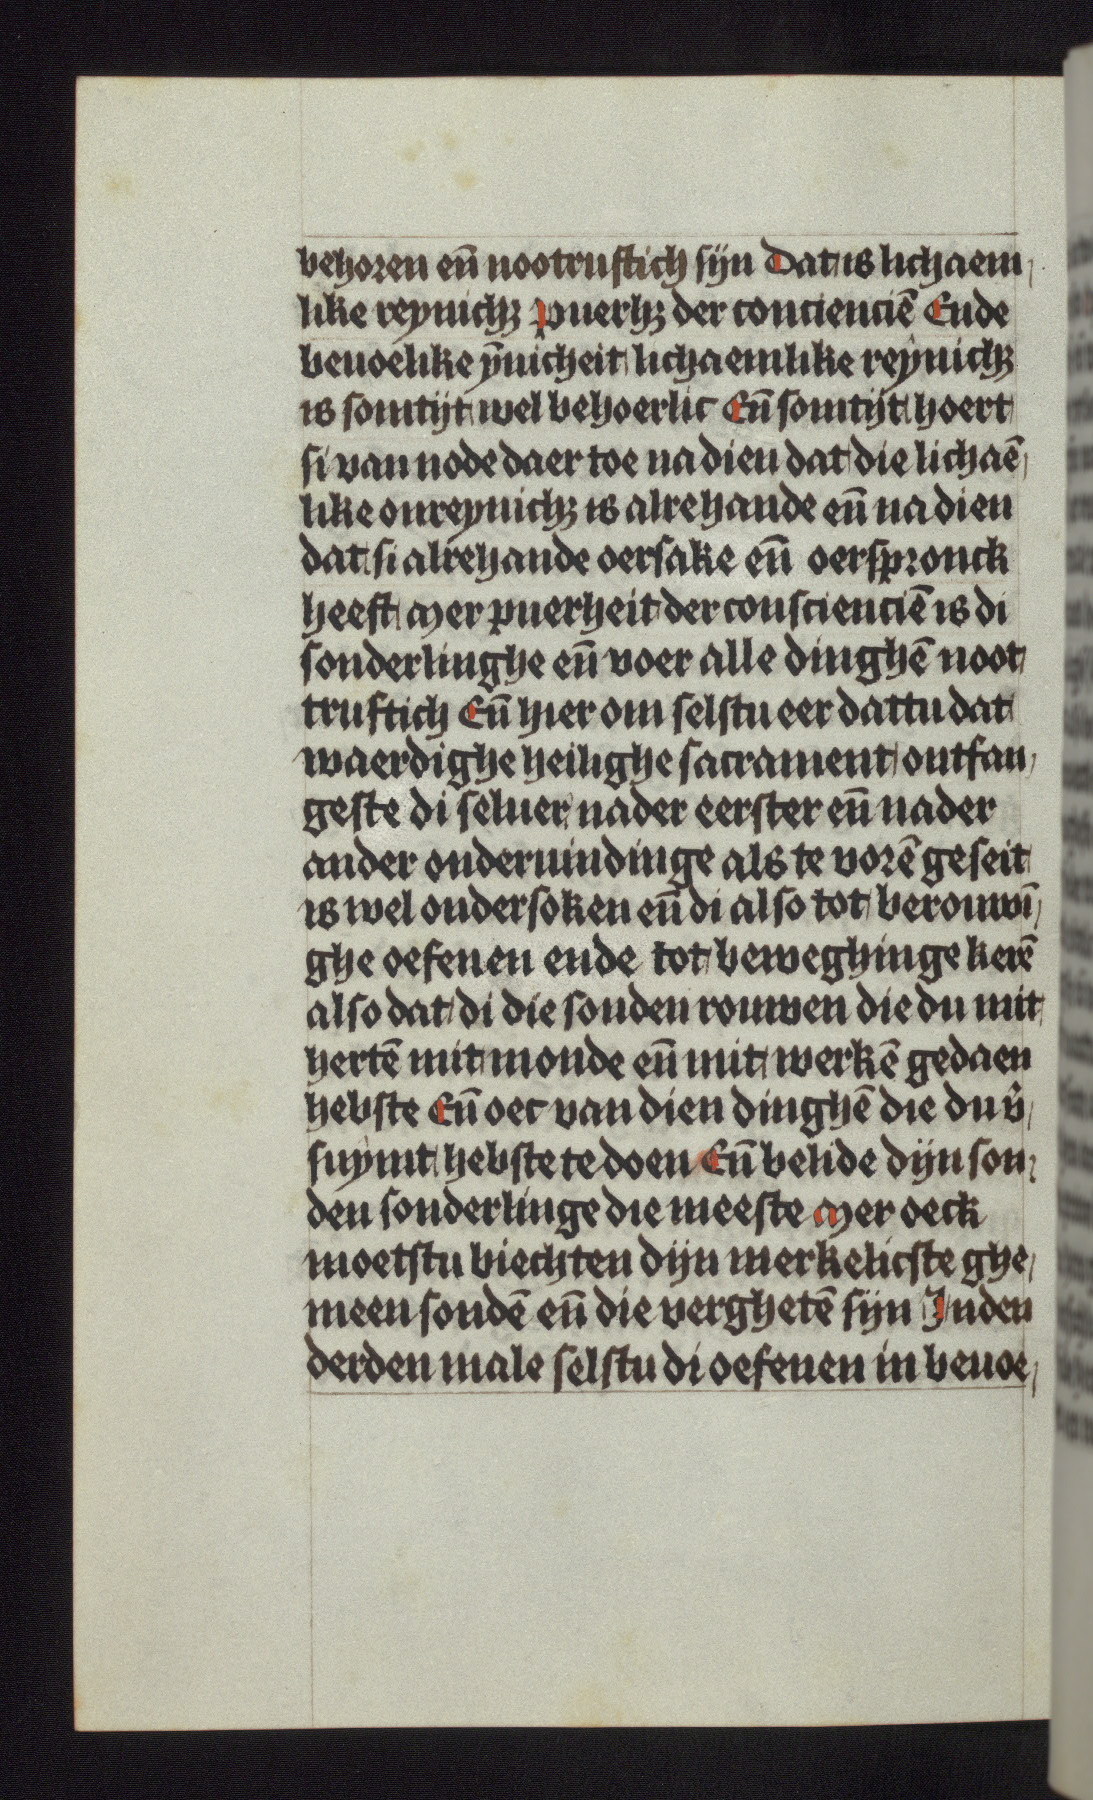 behoren en̄ nootruftich sijn Dat is lichaem,
like reynichꝫ Puerhꝫ der conciencie̅ Ende
beuoelike y̅nicheit lichaemlike reynichꝫ
is somtijt wel behoerlic En̄ somtijt hoert
si van node daer toe na dien dat die lichae̅,
like onreynichꝫ is alrehande en̄ na dien
dat si alrehande oersake en̄ oerspronck
heeft Mer puerheit der consciencie̅ is di
sonderlinghe en̄ voer alle dinghe̅ noot
truftich En̄ hier om selstu eer dattu dat
waerdighe heilighe sacrament ontfan,
geste di seluer na der eerster en̄ na der
ander onderuindinge als te vore̅ geseit
is wel ondersoken en̄ di also tot berouwi̅,
ghe oefenen ende tot beweghinge kere̅
also dat di die sonden rouwen die du mit
herte̅ mit monde en̄ mit werke̅ gedaen
hebste En̄ oec van dien dinghe̅ die du v̉
suymt hebste te doen En̄ belide dijn son,
den sonderlinge die meeste Mer oeck
moetstu biechten dijn merkelicste ghe,
meen sonde̅ en̄ die verghete̅ sijn Inden
derden male selstu di oefenen in beuoe,